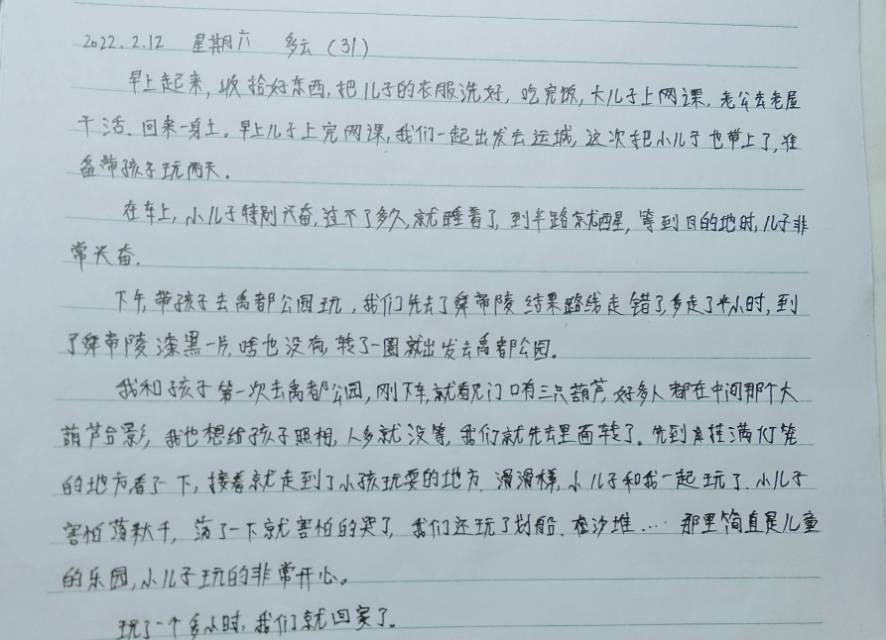 2022.2.12 星期六 多云(31)
早上起来,收拾好东西,把儿子的衣服洗好,吃完饭,大儿子上网课,老公去老屋
干活,回来一身土。早上儿子上完网课,我们一起出发去运城,这次把小儿子也带上了,准
备带孩子玩两天。
在车上,小儿子特别兴奋,过不了多久,就睡着了,到半路就醒,等到目的地时,儿子非
常兴奋.
下午,带孩子去禹都公园玩,我们先去了舜帝陵,结果路线走错了,多走了半小时,到
了舜帝陵漆黑一片,啥也没有,转了一圈就出发去禹都公园。
我和孩子第一次去禹都公园,刚下车,就看见门口有三只葫芦,好多人都在中间那个大
葫芦合影,我也想给孩子照相,人多就没等,我们就先去里面转了。先到挂满灯笼
的地方看了一下,接着就走到了小孩玩耍的地方,滑滑梯,小儿子和我一起玩了,小儿子
害怕荡秋千,荡了一下就害怕的哭了,我们还玩了划船、沙堆… 那里简直是儿童
的乐园,小儿子玩的非常开心。
玩了一个多小时,我们就回家了。